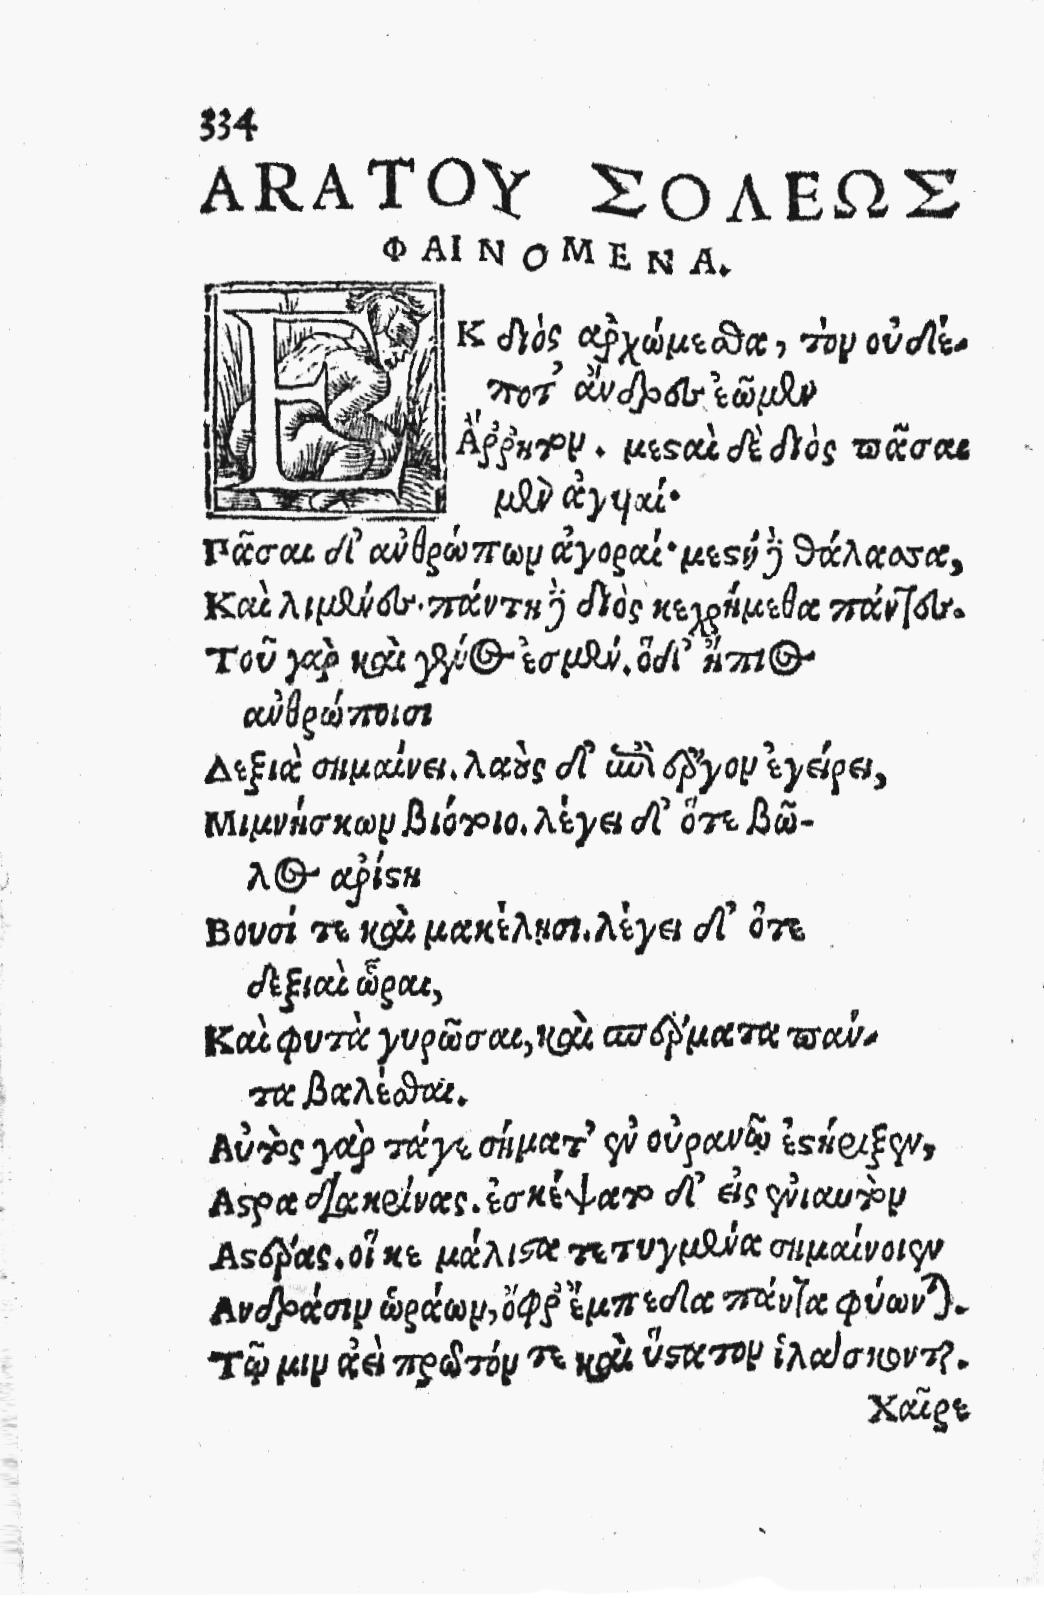 334
ΑRΑΤΟΥ ΣΟΛΕΩΣ
ΦΑΙΝΟΜΕΝΑ.
Εκ διὸς ἀρχώμεσθα, τὸν οὐδέ-
ποτ᾽ ἄνδρες ἐῶμεν
Ἄῤῥητον. μεσαὶ δὲ διὸς πᾶσαι
μὲν ἀγυιαί·
Πᾶσαι δ᾽ ἀνθρώπων ἀγοραί· μεστὴ δὲ θάλασσα,
Καὶ λιμένες· πάντη δὲ διὸς κεχρήμεθα πάντες.
Τοῦ γὰρ καὶ γένος ἐσμέν. ὁ δ᾽ ἤπιος
ἀνθρώποισι
Δεξιὰ σημαίνει. λαοὺς δ᾽ ἐπὶ ἔργον ἐγείρει,
Μιμνήσκων βιότοιο. λέγει δ᾽ ὅτε βῶ-
λος ἀρίστη
Βουσί τε καὶ μακέλῃσι. λέγει δ᾽ ὅτε
δεξιαὶ ὧραι,
Καὶ φυτὰ γυρῶσαι, καὶ σπέρματα πάν-
τα βαλέσθαι.
Αὐτὸς γὰρ τάγε σήματ᾽ ἐν οὐρανῷ ἐστήριξεν,
Αστρα διακρίνας. ἐσκέψατο δ᾽ εἰς ἐνιαυτὸν
Αστέρας. οἵ κε μάλιστα τετυγμένα σημαίνοιεν
Ανδράσιν ὡράων, ὄφρ᾽ ἔμπεδα πάντα φύωνται.
Τῷ μιν ἀεὶ πρῶτόν τε καὶ ὕστατον ἱλάσκονται.
Χαῖρε